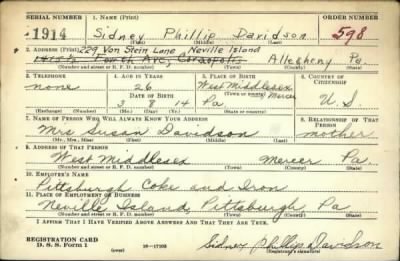 SERIAL NUMBER 1. NAME (Print) ORDER NUMBER
1914 Sidney Phillip Davidson 598
(First) (Middle) (Last)
229 Van Stein Lane Neville Island
2. ADDRESS (Print)
1415½ Fourth Ave, Coraopolis Allegheny Pa.
(Number and street or R. F. D. number) (Town) (County) (State)
3. TELEPHONE 4. AGE IN YEARS 5. PLACE OF BIRTH 6. COUNTRY OF CITIZENSHIP
none 26 West Middlesex
DATE OF BIRTH (Town or county) Mercer
3 8 14 Pa U. S.
(Exchange) (Number) (Mo.) (Day) (Yr.) (State or country)
7. NAME OF PERSON WHO WILL ALWAYS KNOW YOUR ADDRESS 8. RELATIONSHIP OF THAT PERSON
Mrs Susan Davidson mother
(Mr., Mrs., Miss) (First) (Middle) (Last)
9. ADDRESS OF THAT PERSON
West Middlesex Mercer Pa.
(Number and street or R. F. D. number) (Town) (County) (State)
10. EMPLOYER'S NAME
Pittsburgh Coke and Iron
11. PLACE OF EMPLOYMENT OR BUSINESS
Neville Island, Pittsburgh, Pa
(Number and street or R. F. D. number) (Town) (County) (State)
I AFFIRM THAT I HAVE VERIFIED ABOVE ANSWERS AND THAT THEY ARE TRUE.
REGISTRATION CARD
D. S. S. Form 1 (over) 16—17105 Sidney Phillip Davidson
(Registrant's signature)